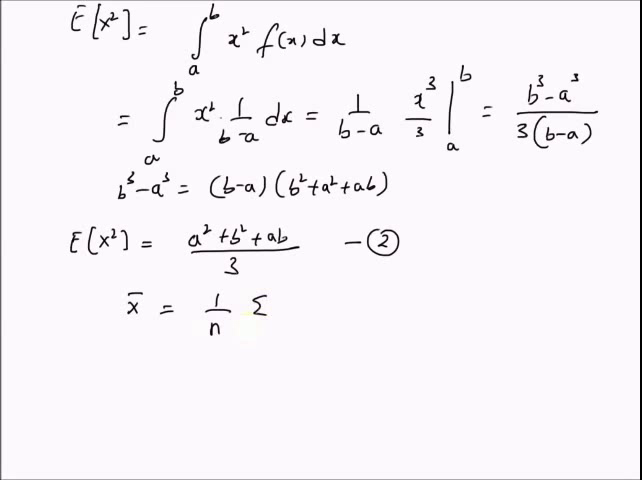 E[x²] = ∫ₐᵇ x² f(x) dx
= ∫ₐᵇ x² · 1/(b-a) dx = 1/(b-a) x³/3 |ₐᵇ = (b³-a³)/(3(b-a))
b³-a³ = (b-a)(b²+a²+ab)
E[x²] = (a²+b²+ab)/3 — ②
x̄ = 1/n Σ